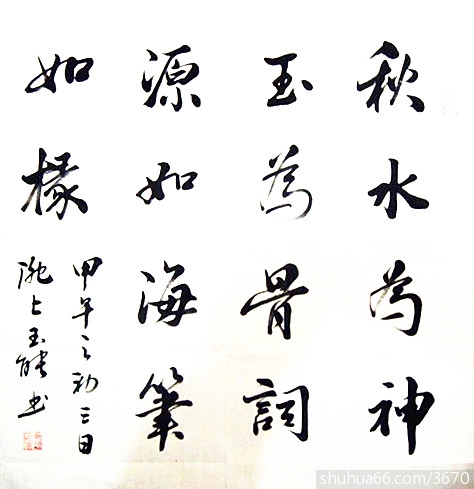 秋水為神
玉為骨詞
源如海筆
如椽
甲午之初三日
隴上玉能书
shuhua66.com/3670